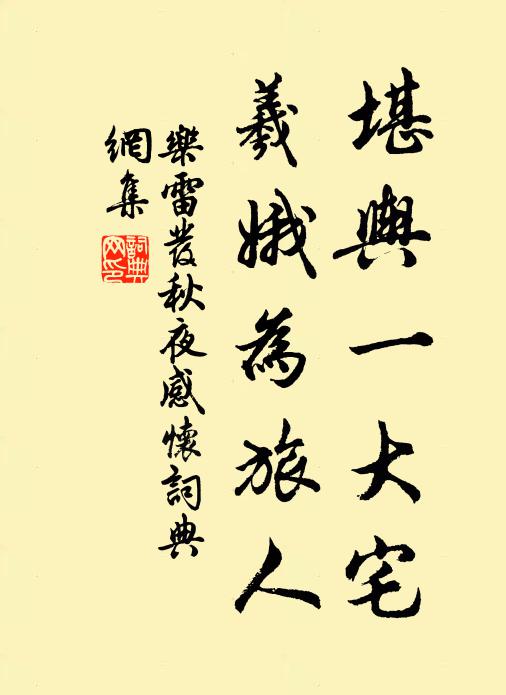 堪輿一大宅
羲娥為旅人
樂雷發秋夜感懷詞典
網集
詞典
网印